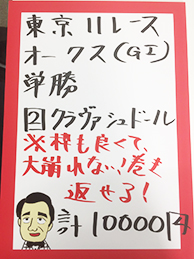 東京11レース
オークス(GI)
単勝
2クラヴァシュドール
※枠も良くて、
大崩れない!巻き
返せる!
計10000円